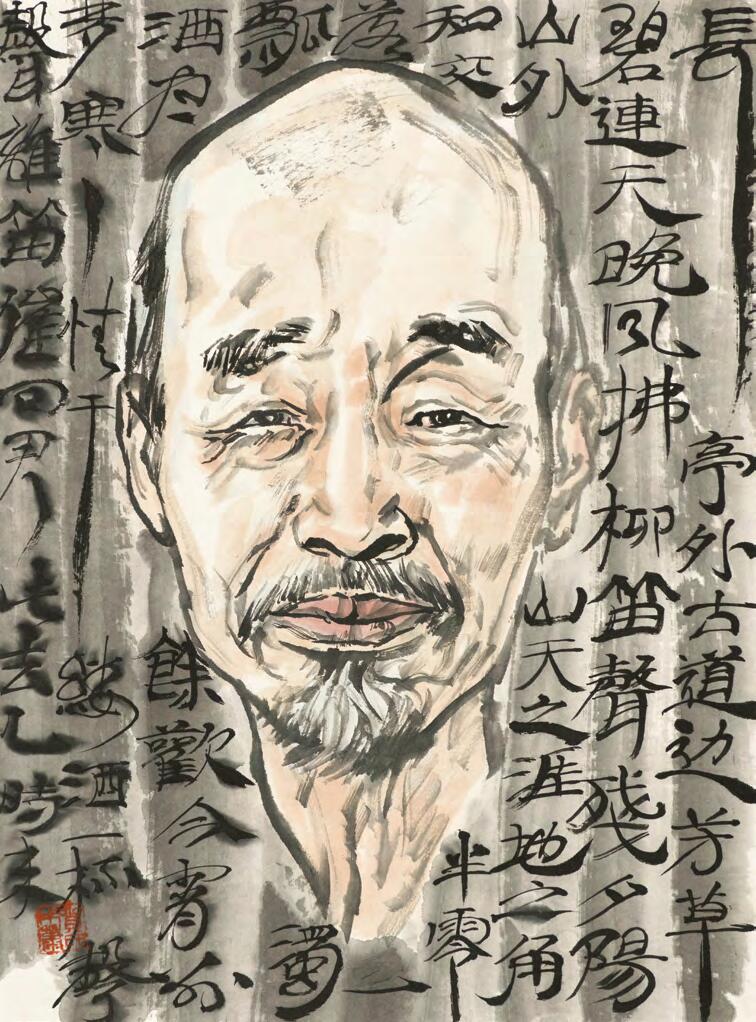 長亭外古道边芳草
碧連天晚风拂柳笛聲残夕陽
山外山天之涯地之角
知交半零
落一
瓢濁
酒尽餘歡今宵别
梦寒情千缕酒一杯聲
聲離笛催问君此去几時来